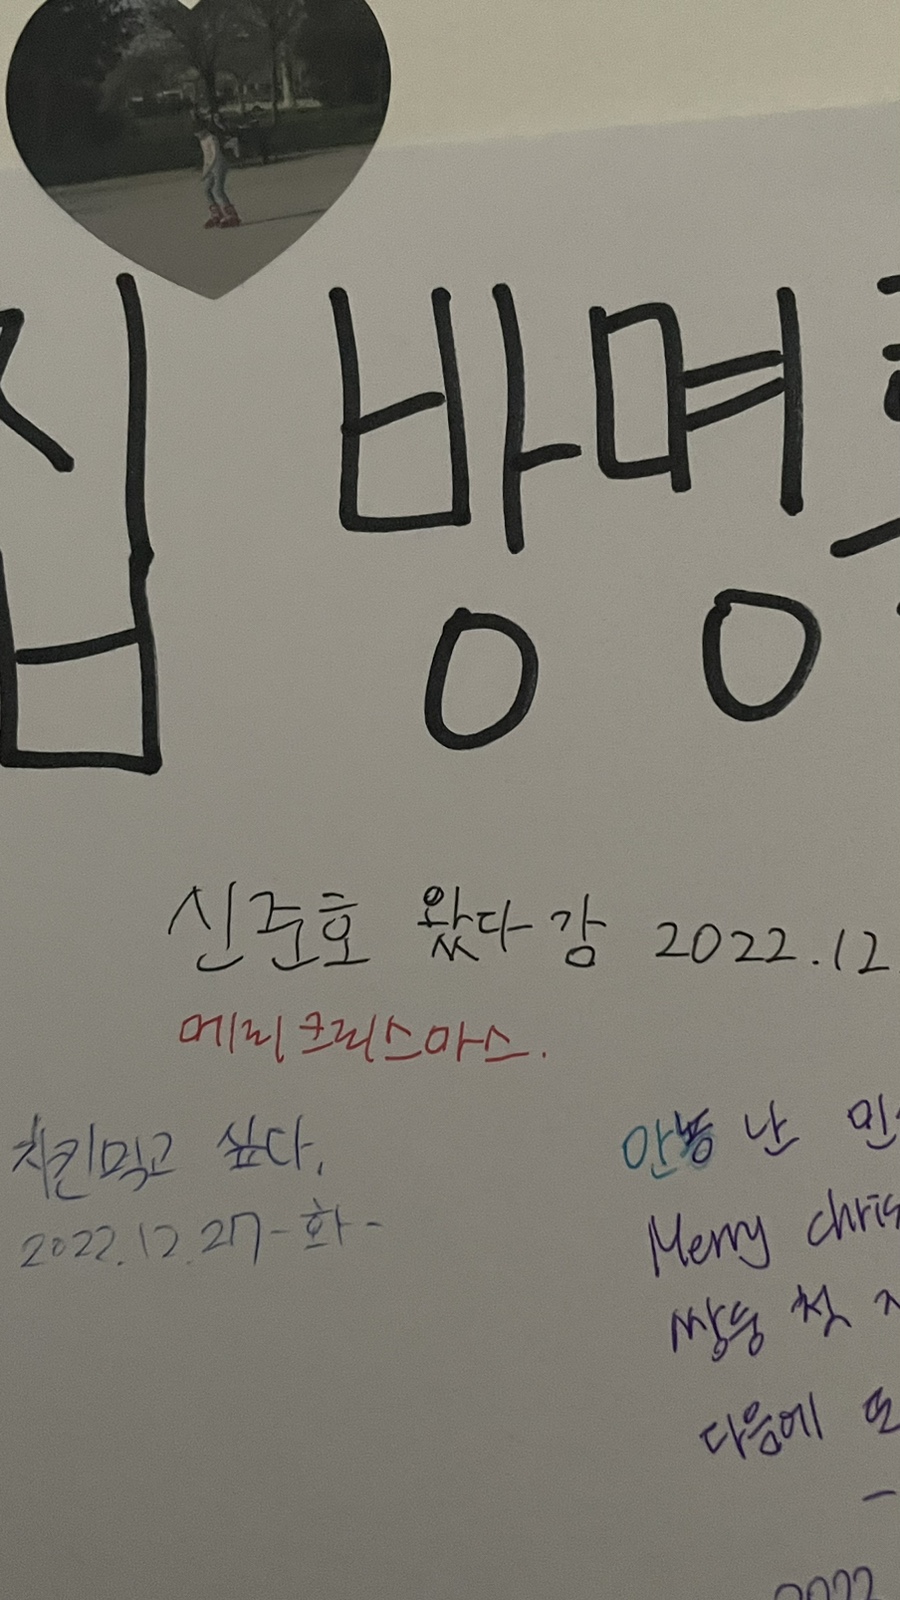 집 방명록
신준호 왔다 감 2022.12.
메리크리스마스.
치킨먹고 싶다.
2022.12.27-화-
안뇽 난 민
Merry chris
쌍둥 첫
다음에 또
2022